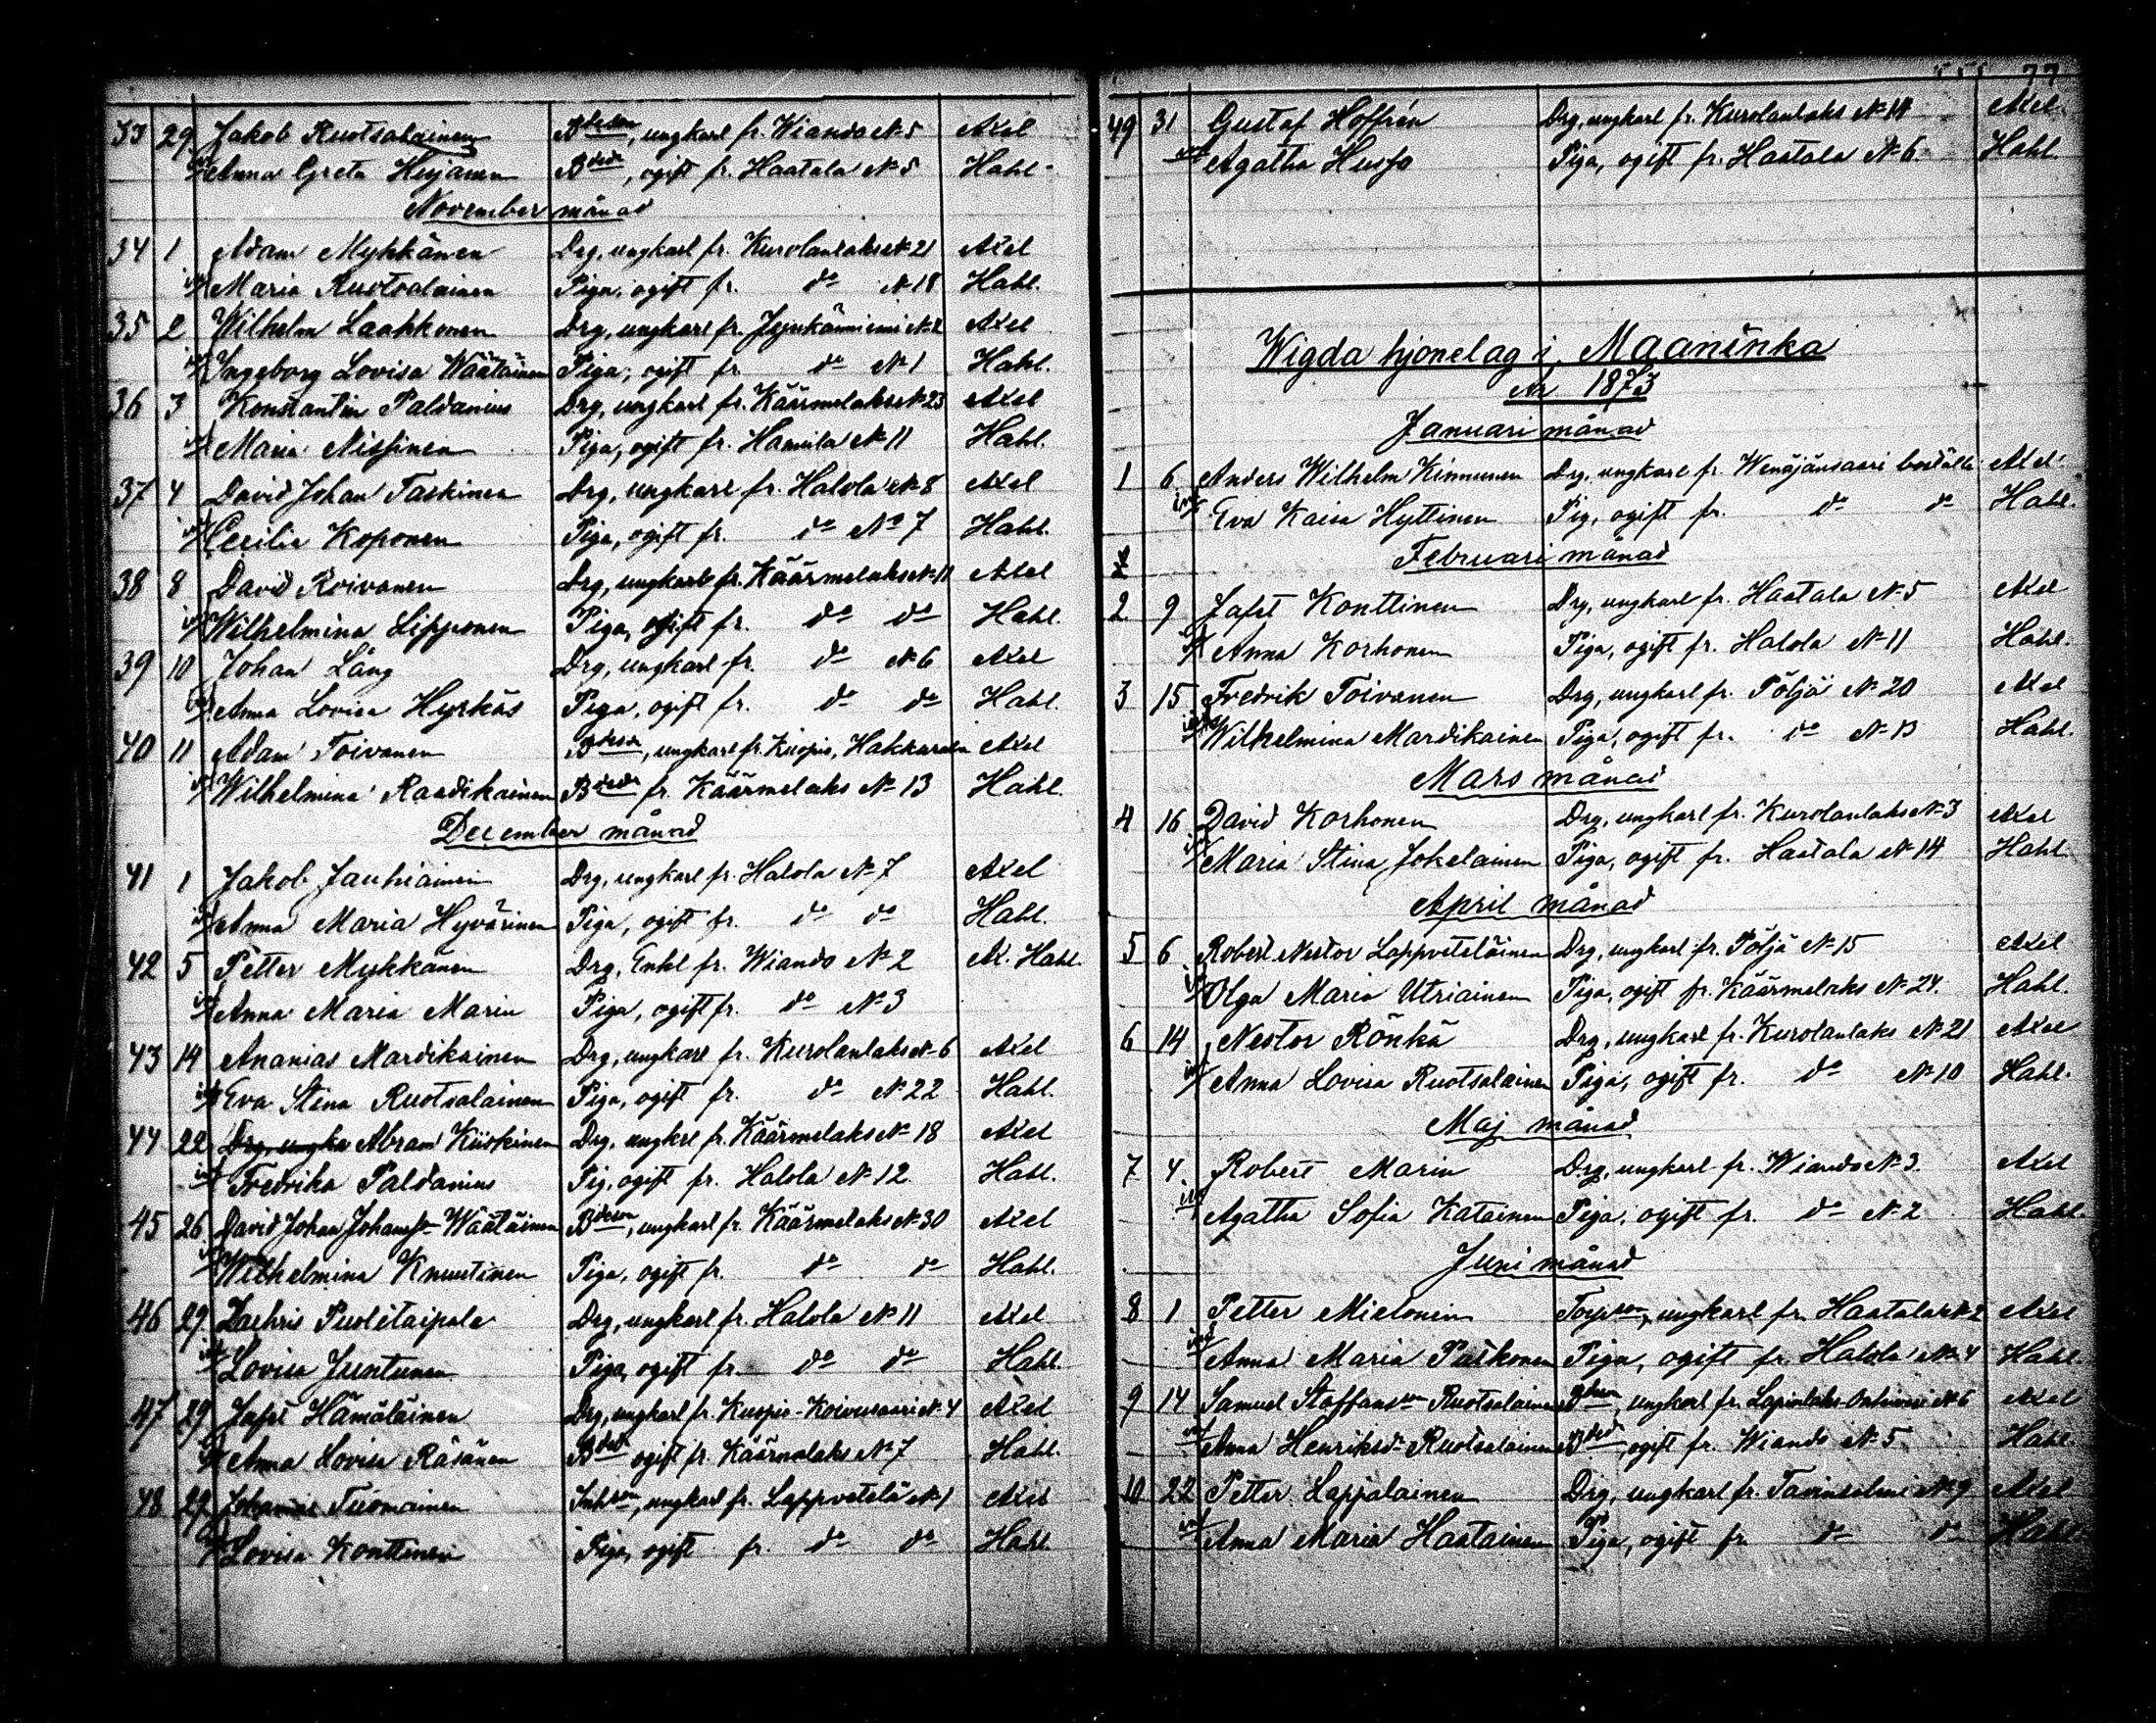 33 29 Jakob Ruotsalainen Bdeson, ungkarl fr. Wiando № 5 Axel
Anna Greta Hujanen Bdedr, ogift fr. Haatala № 5 Hahl.
November månad
34 1 Adam Mykkänen Drg, ungkarl fr. Kurolanlaks № 21 Axel
Maria Ruotsalainen Piga, ogift fr. do № 18 Hahl.
35 2 Wilhelm Laakkonen Drg, ungkarl fr. № 2 Axel
Ingeborg Lovisa Wäätäinen Piga, ogift fr. do № 1 Hahl.
36 3 Konstantin Paldanius Drg, ungkarl fr. Käärmelaks № 23 Axel
Maria Nissinen Piga, ogift fr. Hamula № 11 Hahl.
37 4 David Johan Taskinen Drg, ungkarl fr. Halola № 8 Axel
Cecilia Koponen Piga, ogift fr. do No 7 Hahl.
38 8 David Roivanen Drg, ungkarl fr. Käärmelaks № 11 Axel
Wilhelmina Lipponen Piga, ogift fr. do do Hahl.
39 10 Johan Lång Drg, ungkarl fr. do № 6 Axel
Anna Lovisa Hyrkäs Piga, ogift fr. do do Hahl.
40 11 Adam Toivanen Bdeson, ungkarl fr. Kuopio, Hakkarala Axel
Wilhelmina Raadikainen Bdedr fr. Käärmelaks № 13 Hahl.
December månad
41 1 Jakob Jauhiainen Drg, ungkarl fr. Halola № 7 Axel
Anna Maria Hyvärinen Piga, ogift fr. do do Hahl.
42 5 Petter Mykkänen Drg, Enkl fr. Wiando № 2 Ax. Hahl.
Anna Maria Marin Piga, ogift fr. do № 3
43 14 Ananias Mardikainen Drg, ungkarl fr. Kurolanlaks № 6 Axel
Eva Stina Ruotsalainen Piga, ogift fr. do № 22 Hahl.
44 22 Drg, ungka Abram Kiiskinen Drg, ungkrl fr. Käärmelaks № 18 Axel
Fredrika Paldanius Pig, ogift fr. Halola № 12 Hahl.
45 26 David Johan Johansson Wäätäinen Bdeson, ungkarl fr. Käärmelaks № 30 Axel
Wilhelmina Knuutinen Piga, ogift fr. do do Hahl.
46 29 Zachris Puolitaipale Drg, ungkarl fr. Halola № 11 Axel
Lovisa Juntunen Piga, ogift fr. do do Hahl
47 29 Jafet Hämäläinen Drg, ungkarl fr. Kuopio-Koivusaari № 4 Axel
Anna Lovisa Räsänen Bdedr ogift fr. Käärmelaks № 7 Hahl.
48 29 Johannes Tuomainen Inhson, ungkarl fr. Lappvetelä № 1 Axel
Lovisa Konttinen Piga, ogift fr. do do Hahl.
77
49 31 Gustaf Hoffrén Drg, ungkarl fr. Kurolanlaks № 14 Axel
Agatha Husso Piga, ogift fr. Haatala № 6. Hahl.
Wigda hjonelag i Maaninka
År 1873
Januari månad
1 6 Anders Wilhelm Kinnunen Drg, ungkarl fr. Wenäjänsaari boställe Axel
Eva Kaisa Hyttinen Pig, ogift fr. do do Hahl.
Februari månad
2 9 Jafet Konttinen Drg, ungkarl fr. Haatala № 5 Axel
Anna Korhonen Piga, ogift fr. Halola № 11 Hahl.
3 15 Fredrik Toivanen Drg, ungkarl fr. Pöljä № 20 Axel
Wilhelmina Mardikainen Piga, ogift fr. do № 13 Hahl.
Mars månad
4 16 David Korhonen Drg, ungkarl fr. Kurolanlaks № 3 Axel
Maria Stina Jokelainen Piga, ogift fr. Haatala № 14 Hahl
April månad
5 6 Robert Nestor Lappveteläinen Drg, ungkarl fr. Pöljä № 15 Axel
Olga Maria Utriainen Piga, ogift fr. Käärmelaks № 24. Hahl.
6 14 Nestor Rönkä Drg, ungkarl fr. Kurolanlaks № 21 Axel
Anna Lovisa Ruotsalainen Piga, ogift fr. do № 10 Hahl.
Maj månad
7 4 Robert Marin Drg, ungkarl fr. Wiando № 3. Axel
Agatha Sofia Katainen Piga, ogift fr. do № 2 Hahl.
Juni månad
8 1 Petter Mielonen Torpson, ungkarl fr. Haatala № 2 Axel
Anna Maria Paikonen Piga, ogift fr. Halola № 4 Hahl.
9 14 Samuel Staffanson Ruotsalainen Bdeson, ungkarl fr. Lapinlaks № 6 Axel
Anna Henriksdr Ruotsalainen Bdedr, ogift fr. Wiando № 5 Hahl.
10 22 Petter Lappalainen Drg, ungkarl fr. Tavinsalmi № 9 Axel
Anna Maria Haatainen Piga, ogift fr. do do Hahl